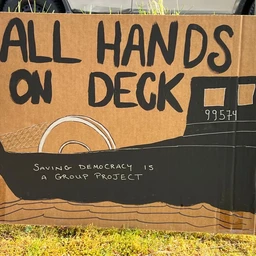 ALL HANDS
ON DECK
99574
SAVING DEMOCRACY IS
A GROUP PROJECT